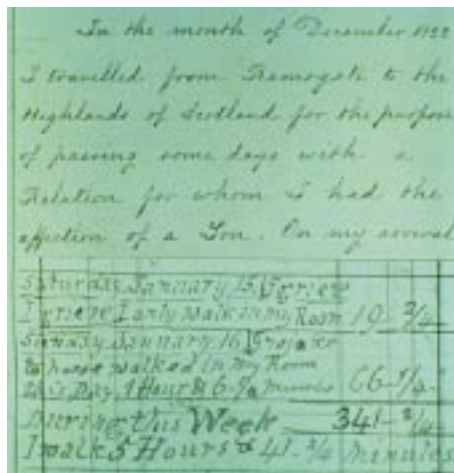 In the month of December 1922
I travelled from Ramsgate to the
Highlands of Scotland for the purpose
of passing some days with a
Relation for whom I had the
affection of a Son. On my arrival
Saturday January 15
I only walk in my Room 19 - 3/4
Sunday January 16
to house walked in my Room
Day, 1 Hour & 6 minutes 66
During this Week 341
I walk 5 Hours & 41 - 3/4 Minutes